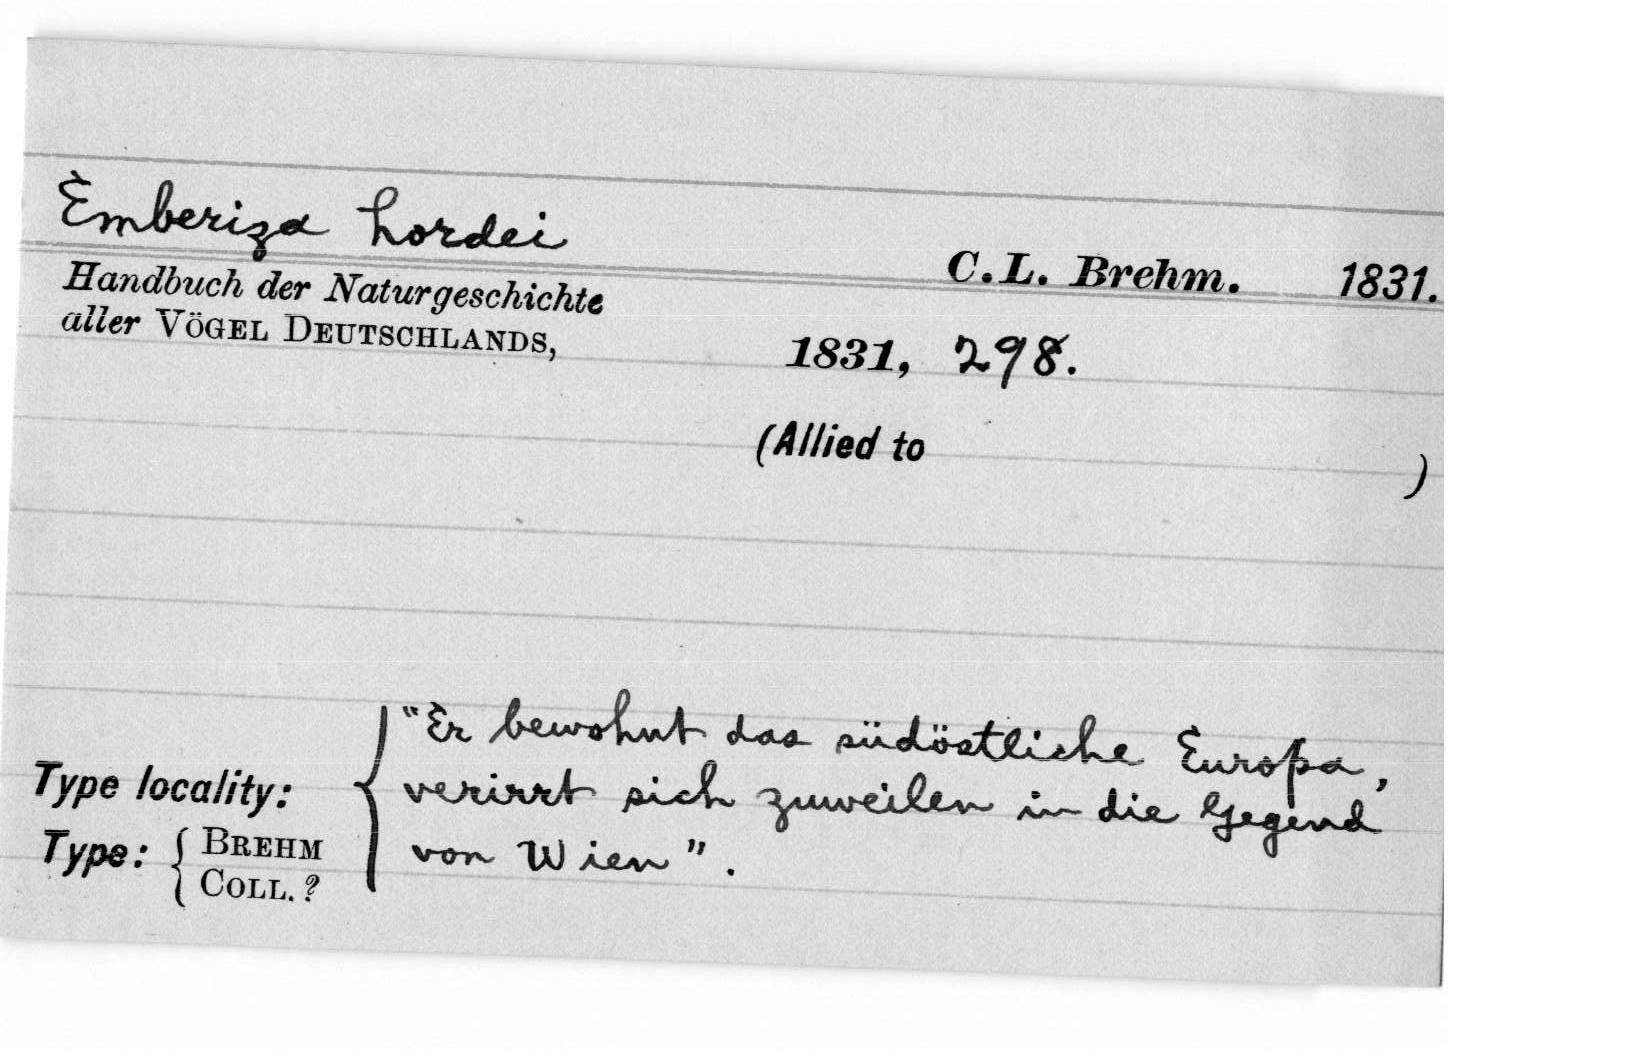 Emberiza hordei
C. L. Brehm. 1831.
Handbuch der Naturgeschichte
aller VÖGEL DEUTSCHLANDS,
1831, 298.
(Allied to )
"Er bewohnt das südöstliche Europa,
Type locality: verirrt sich zuweilen in die Gegend
Type: { BREHM
COLL. ?
von Wien".